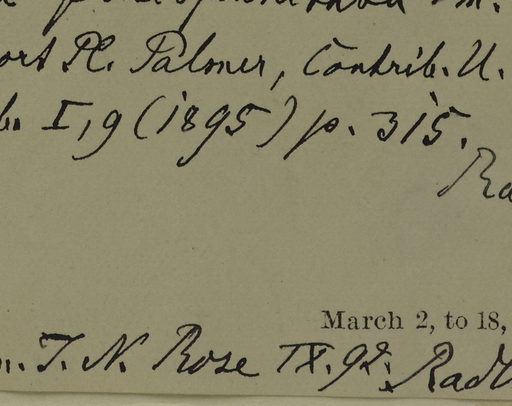 ort Pl. Palmer, Contrib. U.
b. I, 9 (1895) p. 315.
Ra
March 2, to 18,
m. J. N. Rose IX. 92. Radl